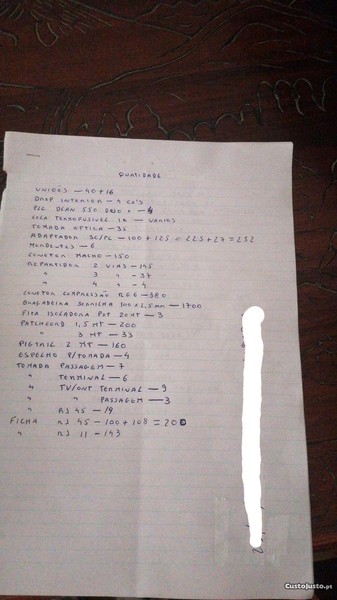 QUATIDADE
UNIÕES — 40+16
DROP INTERIOR — 4 CX'S
PLC DEAN 550 — 4
COLA TERMOFUSIVEL 1K — VARIOS
TOMADA OPTICA — 32
ADAPTADOR SC/PC — 100 + 125 = 225 + 27 = 252
MORDENTES — 6
CONETOR MACHO — 150
REPARTIDOR 2 VIAS — 145
" 3 " — 37
" 4 " — 4
CONETOR COMPRESSÃO RG6 — 380
BRAÇADEIRA SERRILHA 100 x 2,5 MM — 1700
FITA ISOLADORA POT 20MT — 3
PATCHCORD 1,5 MT — 200
" 3 MT — 33
PIGTAIL 2 MT — 160
ESPELHO P/TOMADA — 4
TOMADA PASSAGEM — 7
" TERMINAL — 6
" TV/ONT TERMINAL — 9
" " PASSAGEM — 3
" RJ 45 — 19
FICHA RJ 45 — 100 + 108 = 208
" RJ 11 — 143
CustoJusto.pt